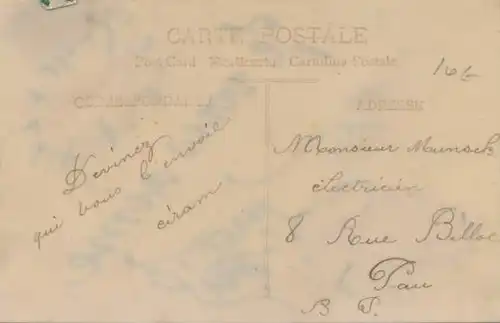 CARTE POSTALE
Post Card Postkarte Cartolina Postale
CORRESPONDANCE
ADRESSE
Devinez
qui vous l'envoie
Monsieur Munsch
électricien
8 Rue Billac
Pau
B P.